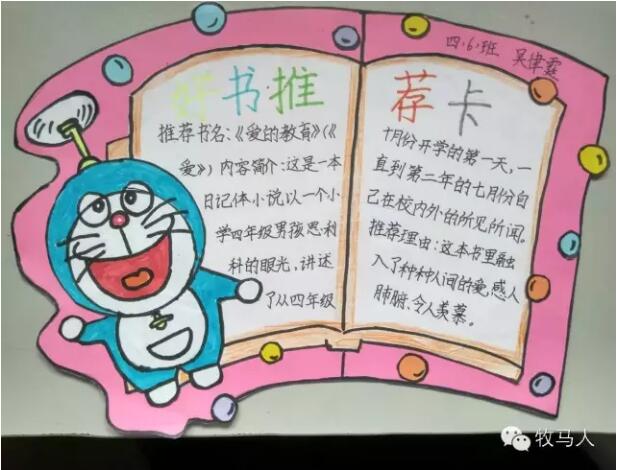 四·6·班 吴律霆
好书·推荐卡
推荐书名:《爱的教育》(《
爱》)内容简介:这是一本
日记体小说以一个小
学四年级男孩思利
科的眼光,讲述
了从四年级
十月份开学的第一天,一
直到第二年的七月份自
己在校内外的所见所闻。
推荐理由:这本书里融
入了种种人间的爱,感人
肺腑、令人羡慕。
牧马人